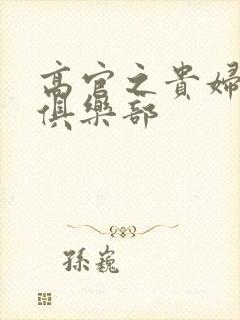 高官之貴婦
俱樂部
孫巍